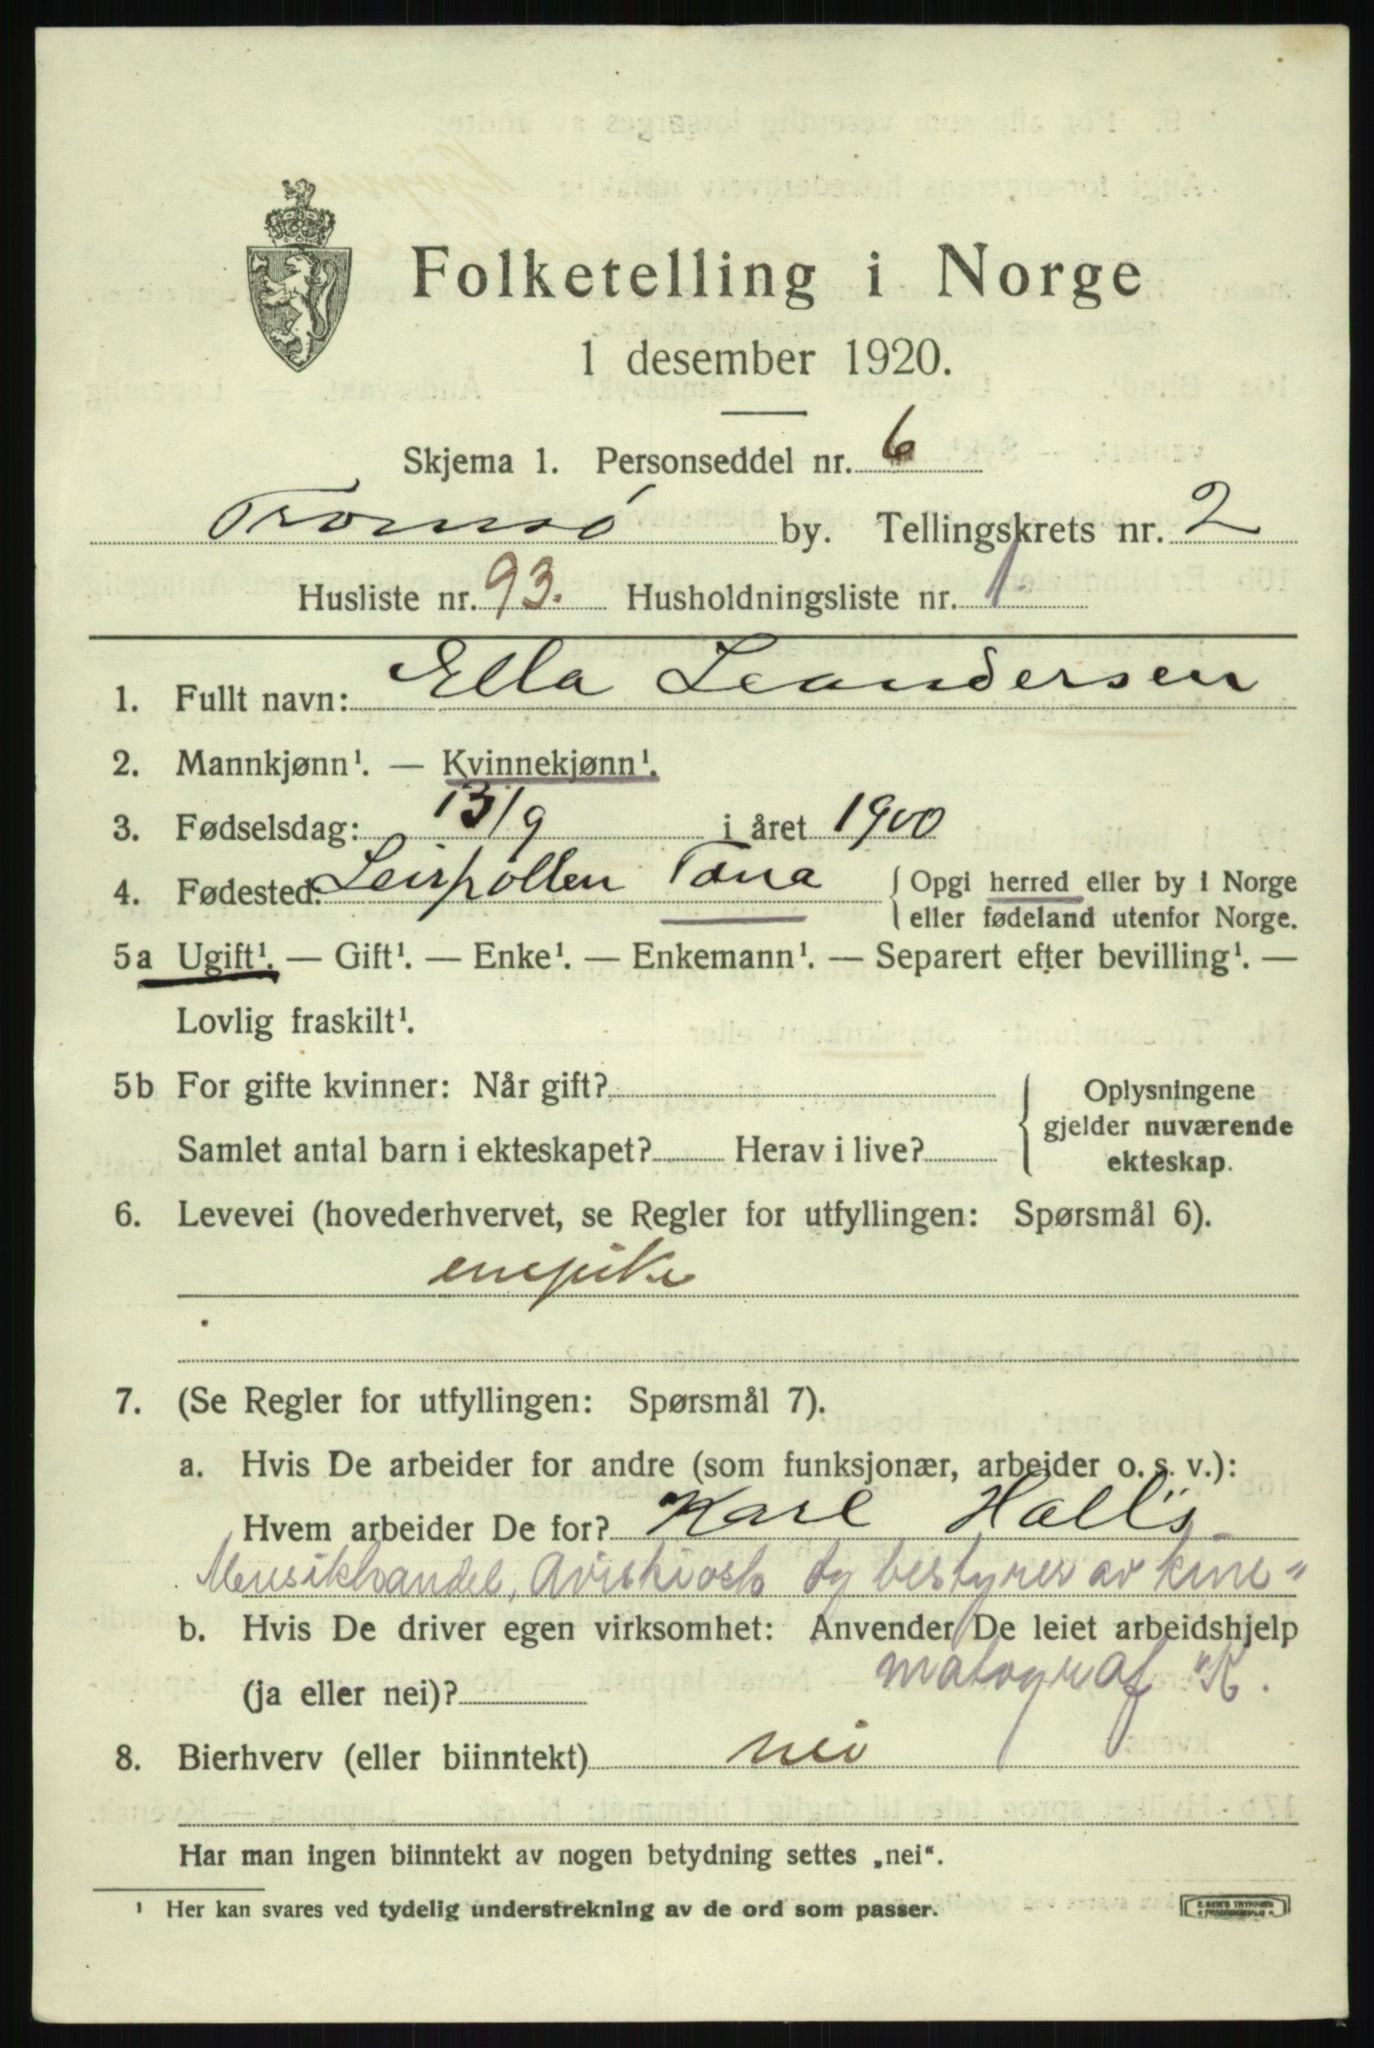 Folketelling i Norge
1 desember 1920.
Skjema 1. Personseddel nr. 6
Tromsó by. Tellingskrets nr. 2
Husliste nr. 93. Husholdningsliste nr. 1
1. Fullt navn: Ella Leandersen
2. Mannkjønn¹. — Kvinnekjønn¹.
3. Fødselsdag: 13/9 i året 1900
4. Fødested: Leirpollen Tana { Opgi herred eller by i Norge
eller fødeland utenfor Norge.
5a Ugift¹. — Gift¹. — Enke¹. — Enkemann¹. — Separert efter bevilling¹. —
Lovlig fraskilt¹.
5b For gifte kvinner: Når gift? { Oplysningene
gjelder nuværende
Samlet antal barn i ekteskapet? Herav i live? ekteskap.
6. Levevei (hovederhvervet, se Regler for utfyllingen: Spørsmål 6).
enepike
7. (Se Regler for utfyllingen: Spørsmål 7).
a. Hvis De arbeider for andre (som funksjonær, arbeider o. s. v.):
Hvem arbeider De for? Karl Hall's
Musikhandel, Aviskiosk og bestyrer av kine-
b. Hvis De driver egen virksomhet: Anvender De leiet arbeidshjelp
matograf "K.
(ja eller nei)?
8. Bierhverv (eller biinntekt) nei
Har man ingen biinntekt av nogen betydning settes „nei“.
¹ Her kan svares ved tydelig understrekning av de ord som passer.